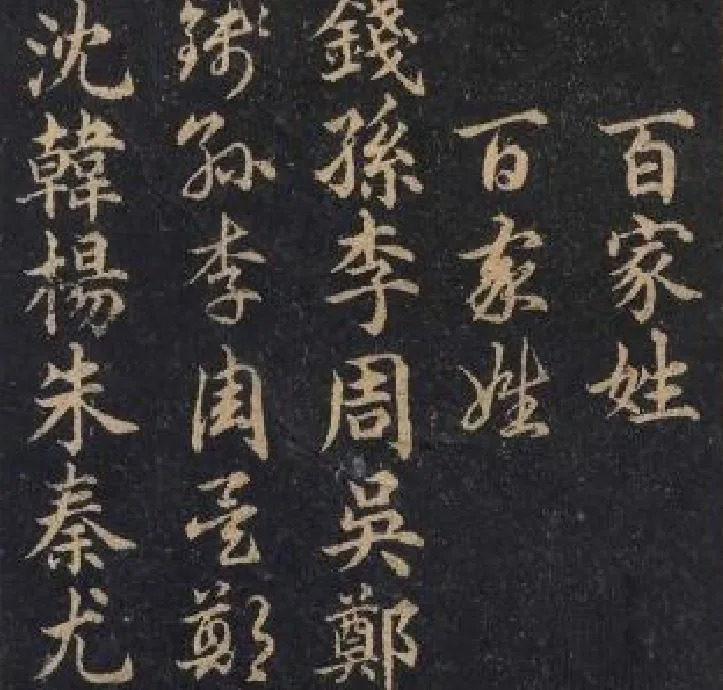 百家姓
百家姓
錢孫李周吳鄭
錢孫李周吳鄭
沈韓楊朱秦尤